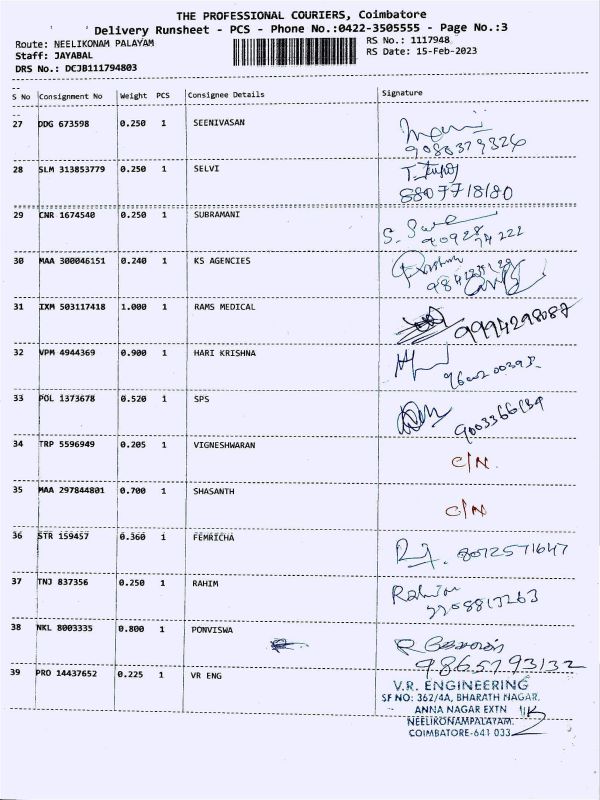 THE PROFESSIONAL COURIERS, Coimbatore
Delivery Runsheet - PCS - Phone No.:0422-3505555 - Page No.:3
Route: NEELIKONAM PALAYAM RS No.: 1117948
Staff: JAYABAL RS Date: 15-Feb-2023
DRS No.: DCJB111794803
S No Consignment No Weight PCS Consignee Details Signature
27 DDG 673598 0.250 1 SEENIVASAN
9088379326
28 SLM 313853779 0.250 1 SELVI
8807718180
29 CNR 1674540 0.250 1 SUBRAMANI
90928 74222
30 MAA 300046151 0.240 1 KS AGENCIES
31 IXM 503117418 1.000 1 RAMS MEDICAL 9994298087
32 VPM 4944369 0.900 1 HARI KRISHNA
33 POL 1373678 0.520 1 SPS 9003366134
34 TRP 5596949 0.205 1 VIGNESHWARAN C/N
35 MAA 297844801 0.700 1 SHASANTH C/N
36 STR 159457 0.360 1 FEMRICHA 8072571647
37 TNJ 837356 0.250 1 RAHIM Rahim
38 NKL 8003335 0.800 1 PONVISWA
9865793132
39 PRO 14437652 0.225 1 VR ENG
V.R. ENGINEERING
SF NO: 362/4A, BHARATH NAGAR,
ANNA NAGAR EXTN
NEELIKONAMPALAYAM,
COIMBATORE-641 033